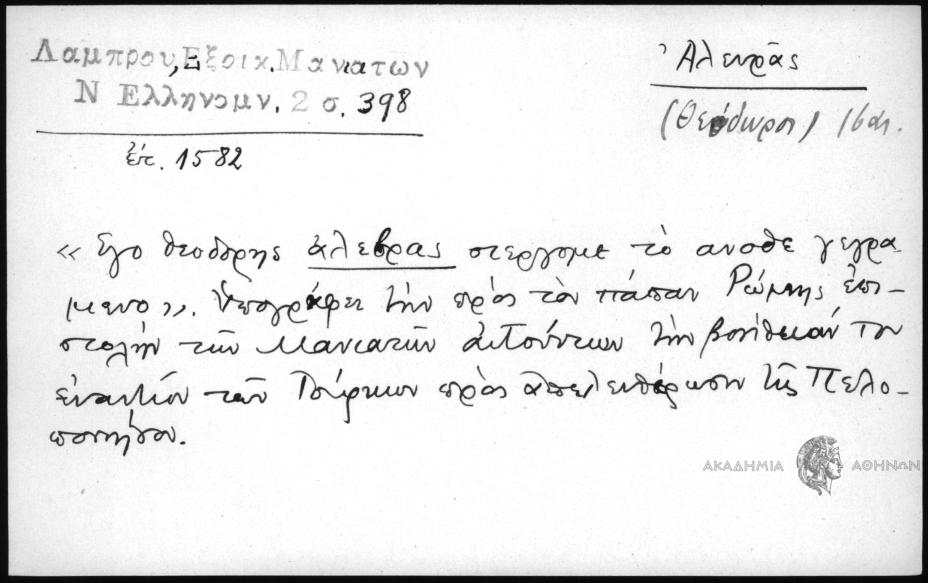 Λαμπρου, Εξοικ. Μανιατων
Ν Ελληνομν. 2 σ. 398
ἔτ. 1582
Ἀλευρᾶς
(Θεόδωρος) 16 αι.
« Εγο θεοδορης αλεβρας στεργομε το ανοθε γεγρα-
μενο ». Ὑπογράφει τὴν πρὸς τὸν πάπαν Ρώμης ἐπι-
στολὴν τῶν Μανιατῶν αἰτούντων τὴν βοήθειάν του
ἐναντίον τῶν Τούρκων πρὸς ἀπελευθέρωσιν τῆς Πελο-
ποννήσου.
ΑΚΑΔΗΜΙΑ ΑΘΗΝΩΝ